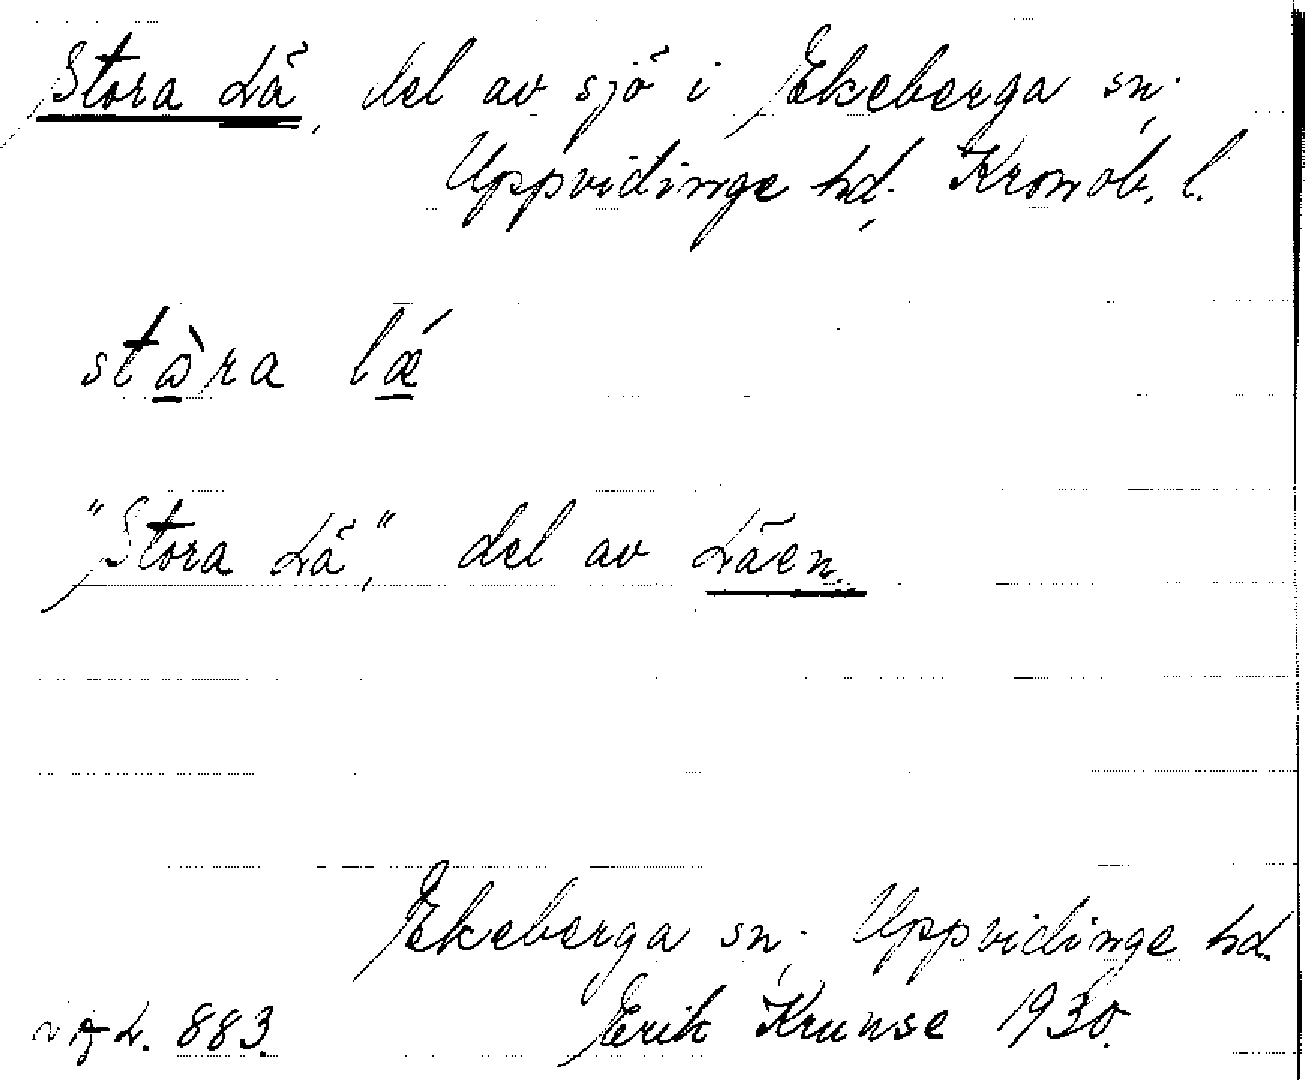 Stora Lå, del av sjö i Ekeberga sn;
Uppvidinge hd; Kronob. l.
stὼra lǽ
"Stora Lå", del av Låen.
Ekeberga sn; Uppvidinge hd.
883. Erik Krunse 1930.